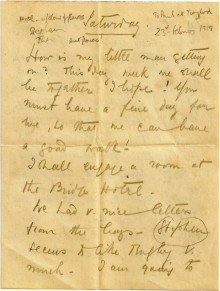 Saturday.
23rd February 1918
How is my little man getting
on? This day week we shall
be together I hope! You
must have a fine day for
me, so that we can have
a good walk!
I shall engage a room at
the Bridge Hotel.
We had v. nice letters
from the boys. Stephen
seems to like Rugby v.
much. I am going to